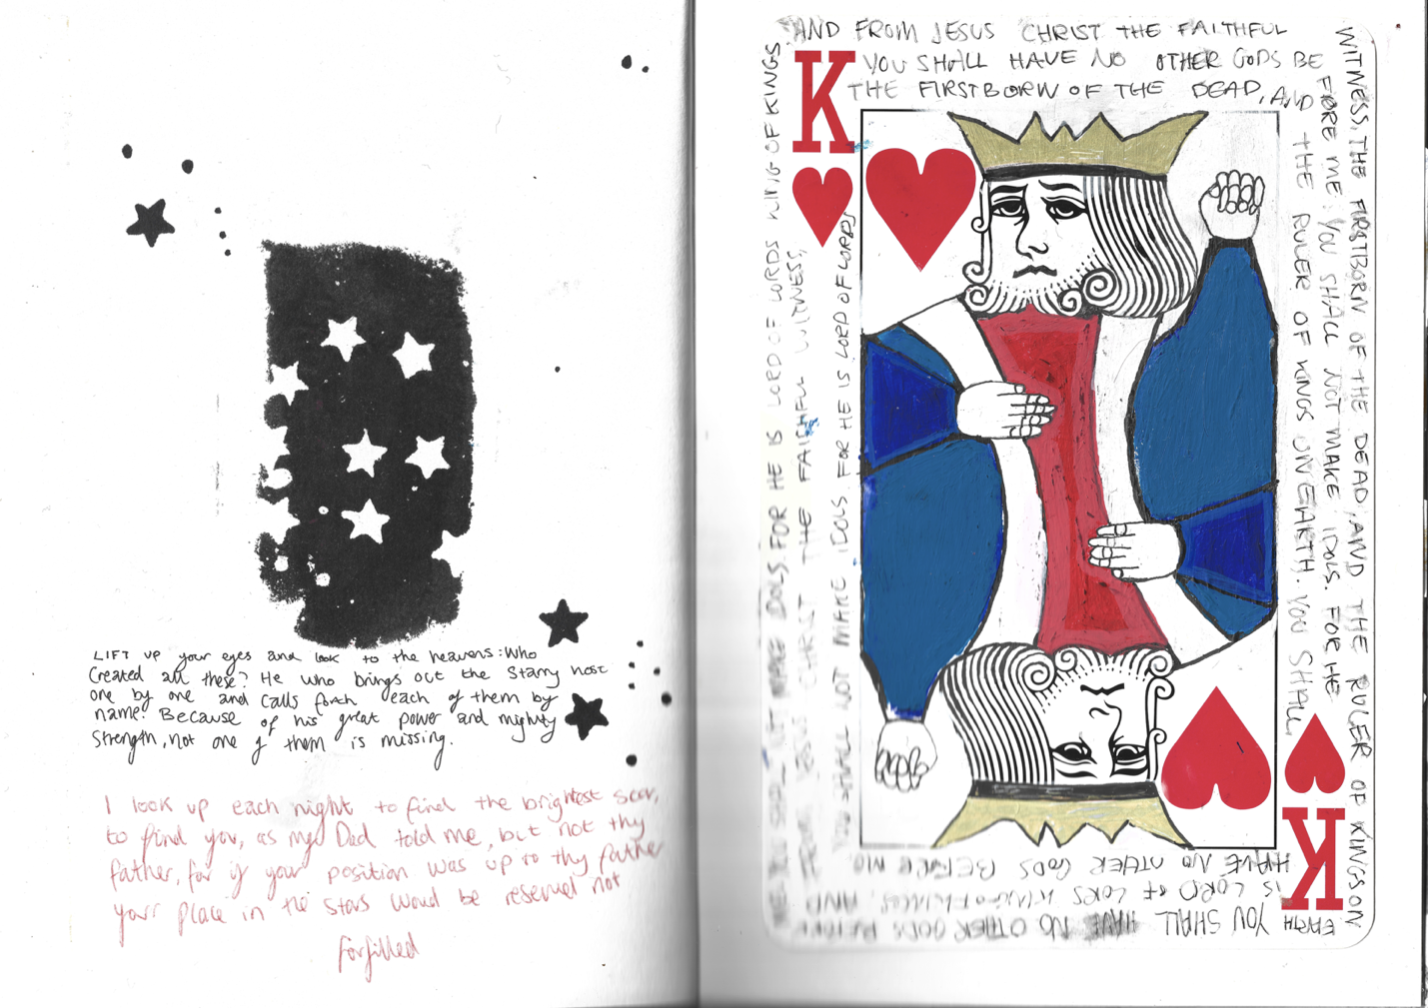 LIFT up your eyes and look to the heavens: Who
Created all these? He who brings out the Starry host
one by one and calls forth each of them by
name. Because of his great power and mighty
Strength, not one of them is missing.
I look up each night to find the brightest star,
to find you, as my Dad told me, but not thy
father, for if your position was up to thy father
your place in the stars would be reserved not
forfilled
AND FROM JESUS CHRIST THE FAITHFUL
WITNESS, THE FIRSTBORN OF THE DEAD, AND THE RULER OF KINGS ON
EARTH YOU SHALL HAVE NO OTHER GODS BEFORE
YOU SHALL HAVE NO OTHER GODS BE
FORE ME. YOU SHALL NOT MAKE IDOLS. FOR HE
IS LORD OF LORDS KING OF KINGS, AND
FROM JESUS CHRIST THE FAITHFUL WITNESS,
THE FIRSTBORN OF THE DEAD, AND
THE RULER OF KINGS ON EARTH. YOU SHALL
HAVE NO OTHER GODS BEFORE ME
YOU SHALL NOT MAKE IDOLS FOR HE IS LORD OF LORDS
ME. YOU SHALL NOT MAKE IDOLS. FOR HE IS LORD OF LORDS KING OF KINGS.
K
K